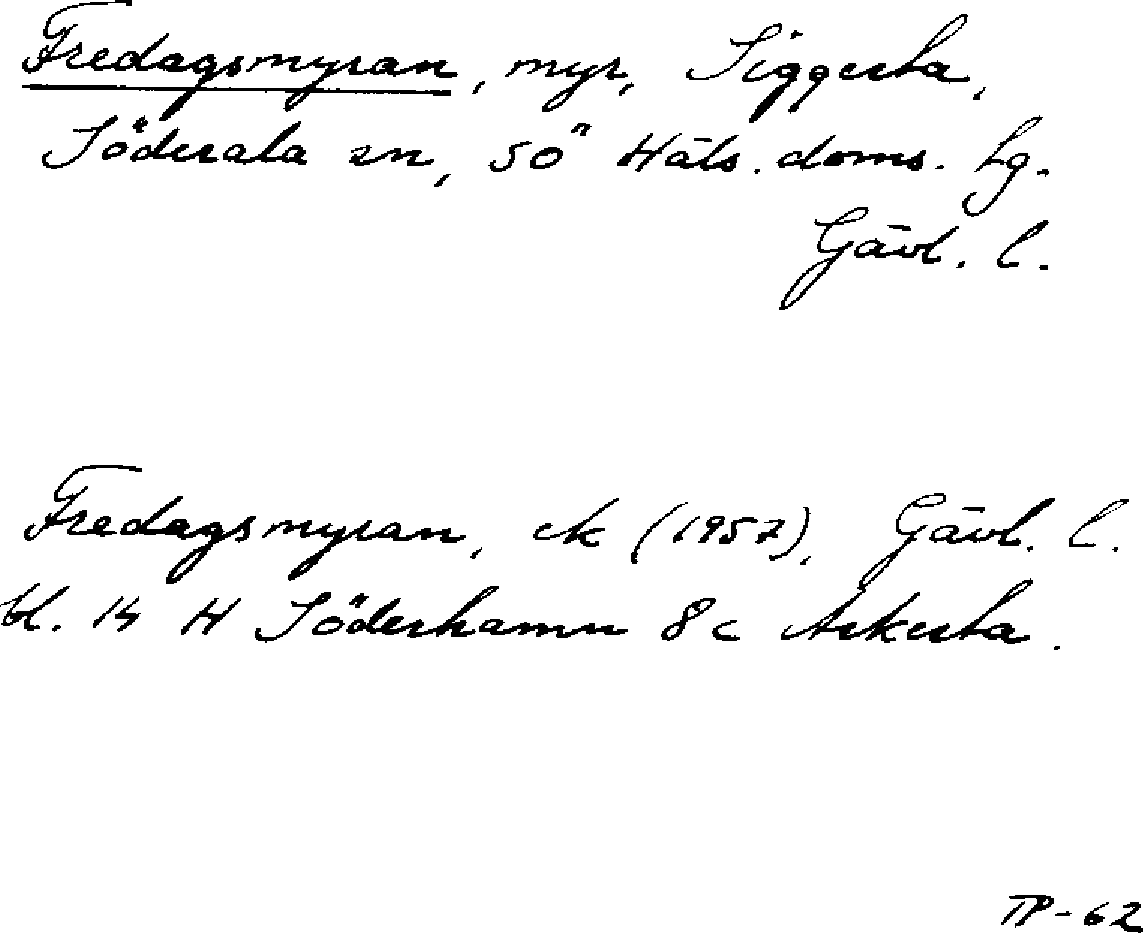 Fredagsmyran, myr, Siggesta,
Söderala sn, SÖ Häls. doms. hg.
Gävl. l.
Fredagsmyran, ek (1957), Gävl. l.
bl. 14 H Söderhamn 8 c Askesta.
TP-62